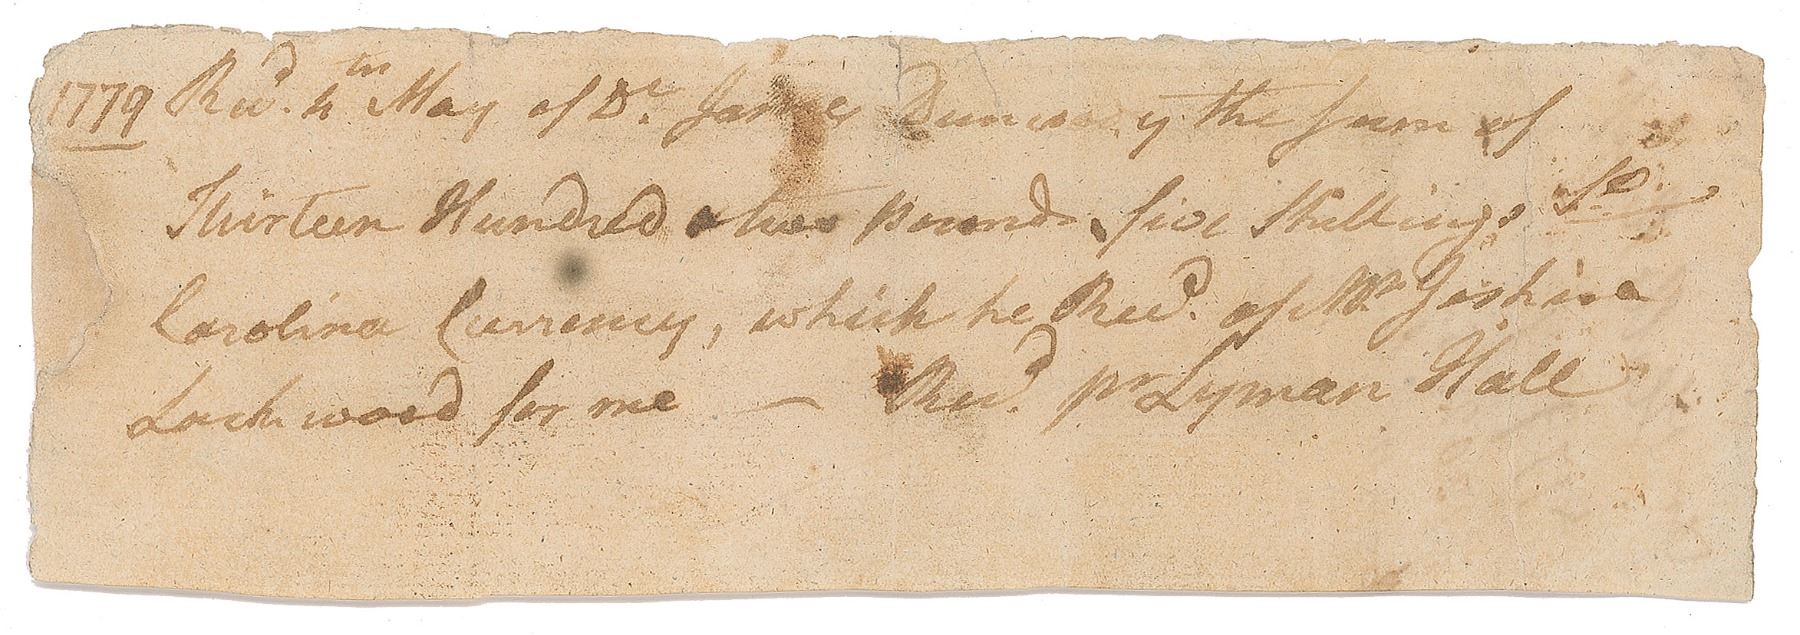 1779 Recd. 4th May of Dr. James Dunwody the sum of
Thirteen Hundred & two pounds, six Shillings So.
Carolina Currency, which he Recd. of Mr Joshua
Lockwood for me — Recd. pr Lyman Hall